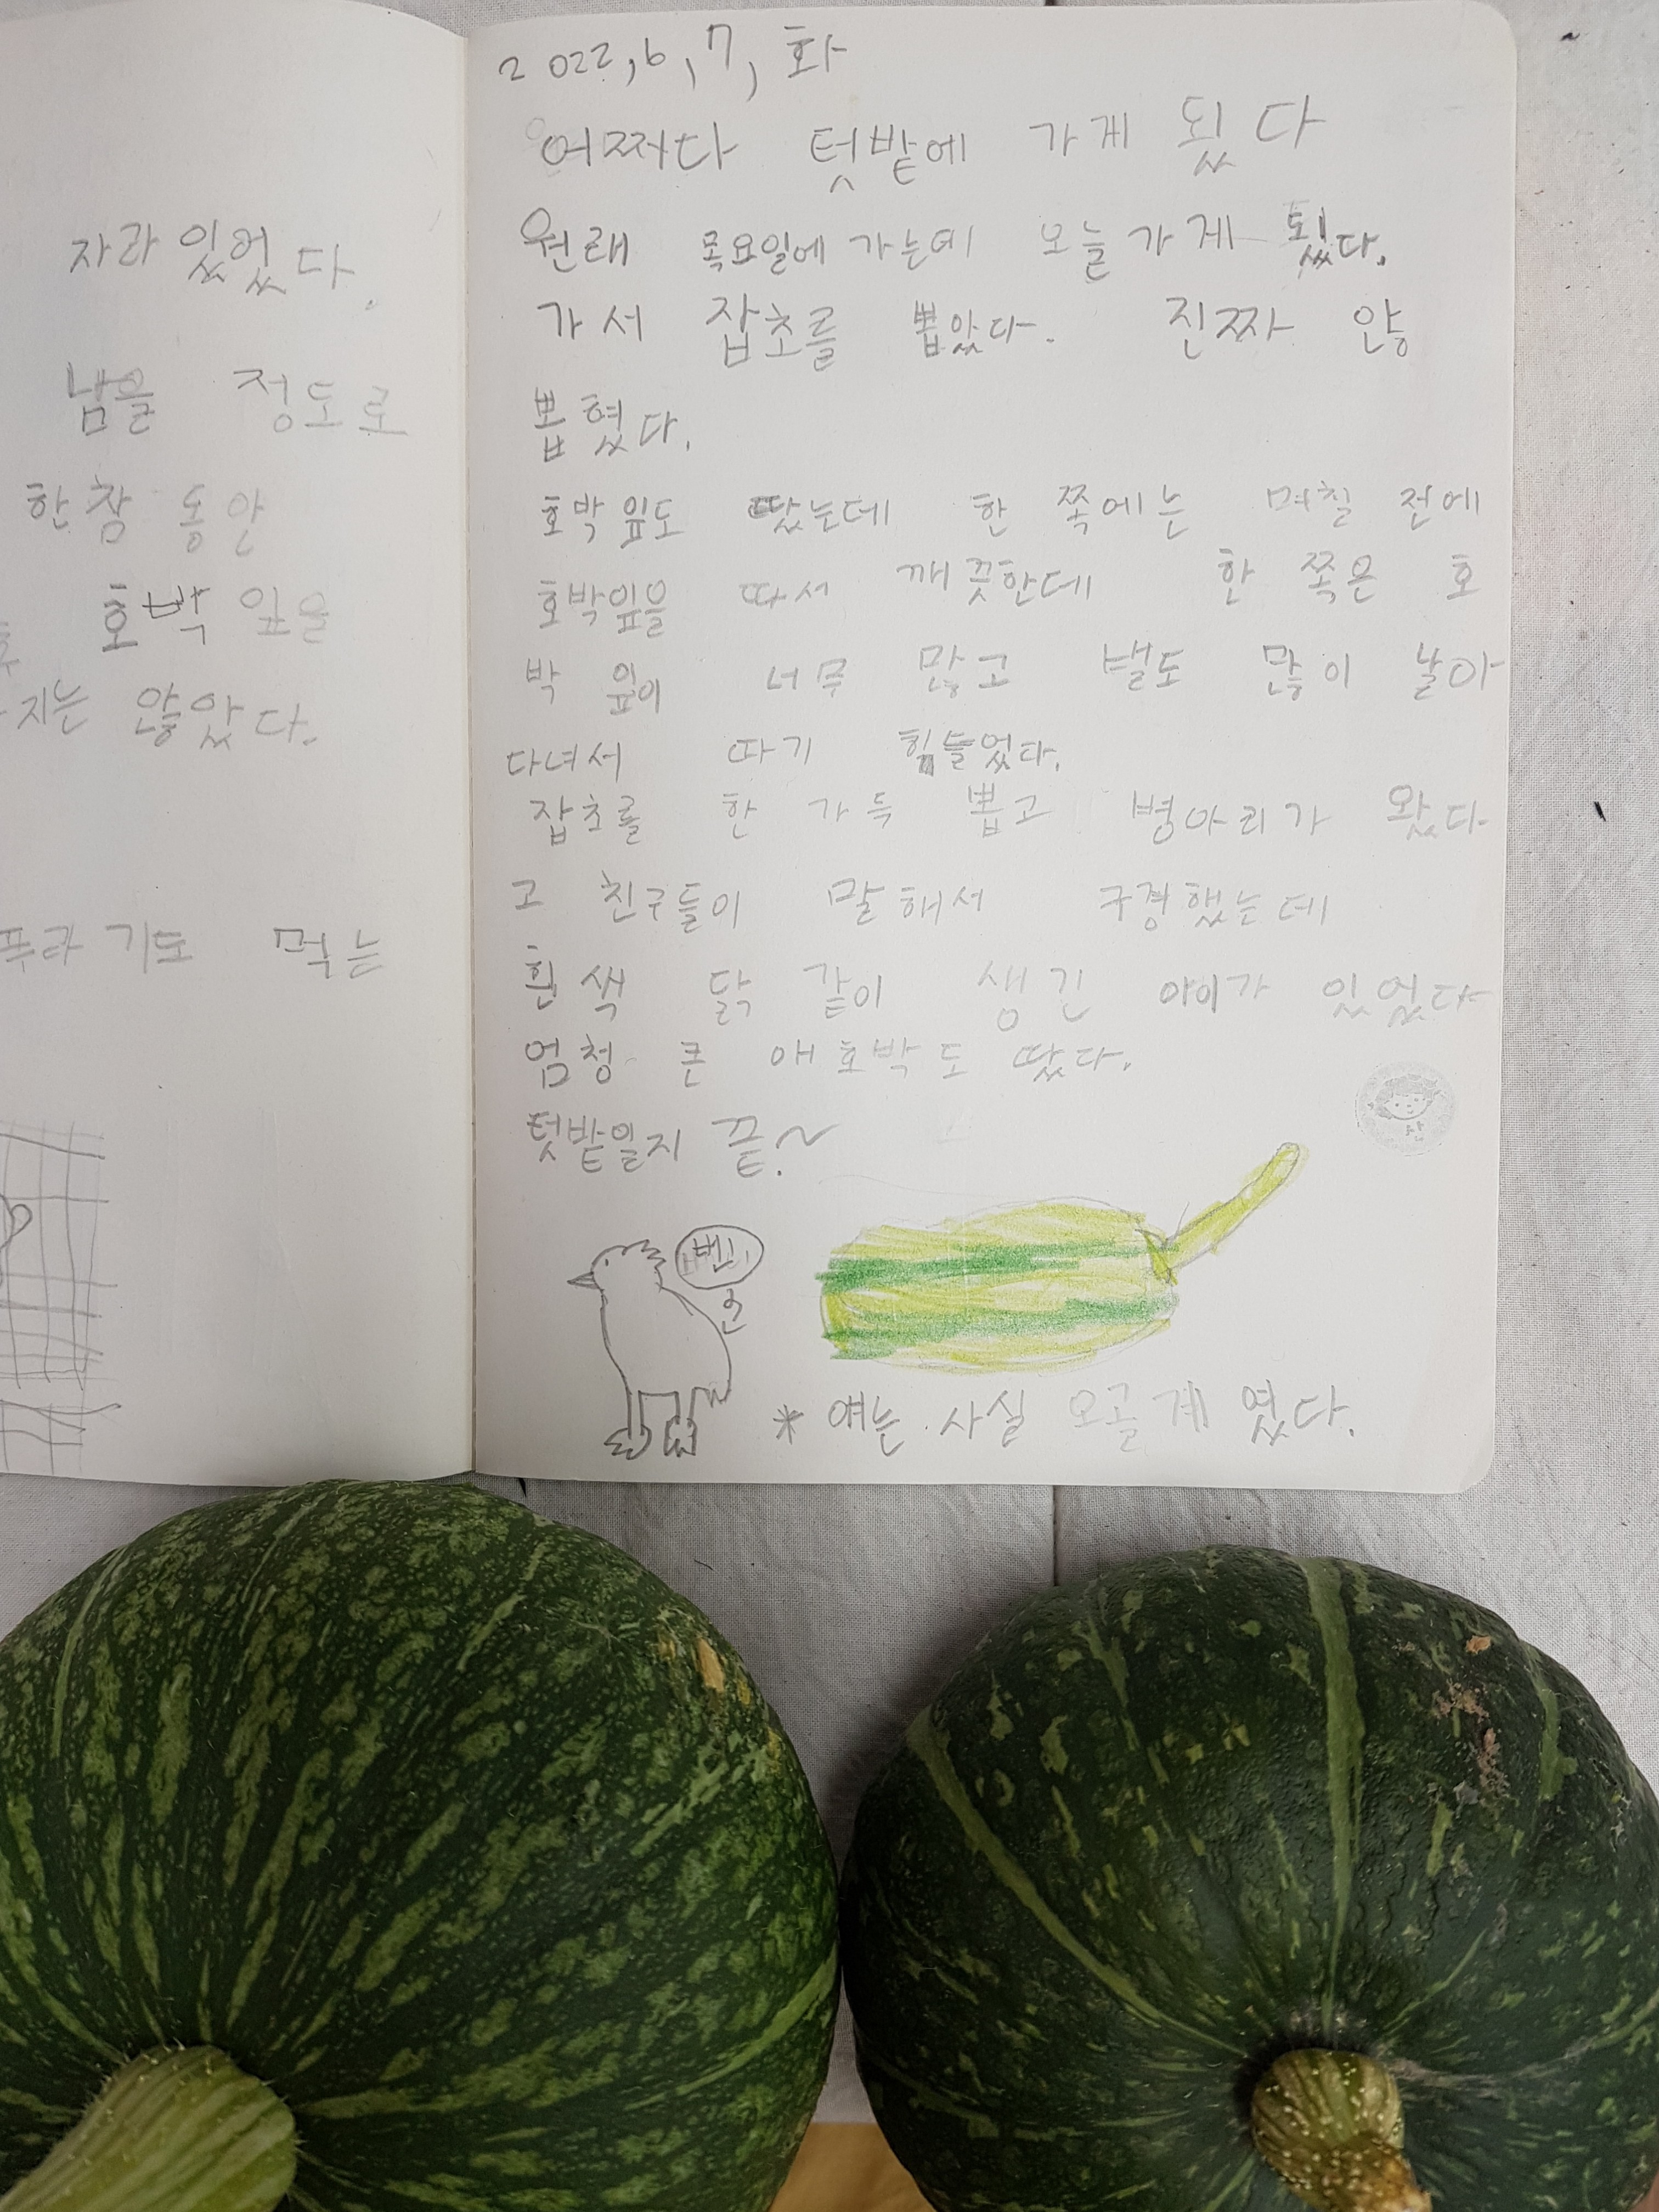 자라있었다.
남을 정도로
한참 동안
호박 잎을
지는 않았다.
푸라기도 먹는
2022, 6, 7, 화
어쩌다 텃밭에 가게 됬다
원래 목요일에 가는데 오늘 가게 됬다.
가서 잡초를 뽑았다. 진짜 않
뽑혔다.
호박잎도 땄는데 한 쪽에는 며칠 전에
호박잎을 따서 깨끗한데 한 쪽은 호
박 잎이 너무 많고 벌도 많이 날아
다녀서 따기 힘들었다.
잡초를 한 가득 뽑고 병아리가 왔다
고 친구들이 말해서 구경했는데
흰색 닭 같이 생긴 아이가 있었다
엄청 큰 애호박도 땄다.
텃밭일지 끝~
* 얘는 사실 오골계 였다.